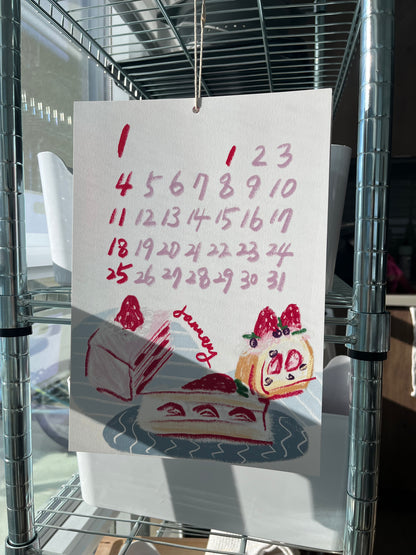 1
1 2 3
4 5 6 7 8 9 10
11 12 13 14 15 16 17
18 19 20 21 22 23 24
25 26 27 28 29 30 31
January